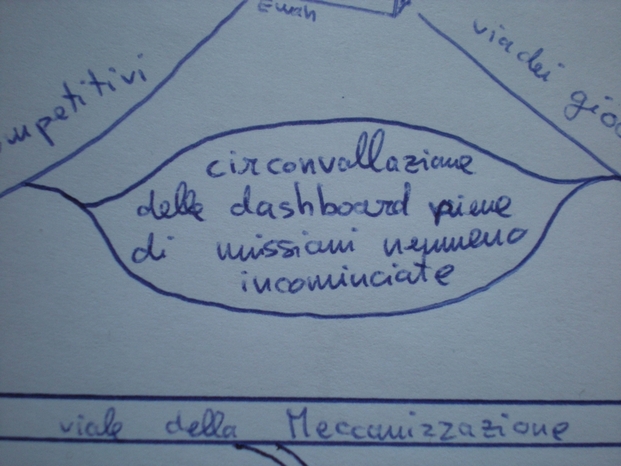 competitivi
via dei
circonvallazione
delle dashboard piene
di missioni nemmeno
incominciate
viale della Meccanizzazione